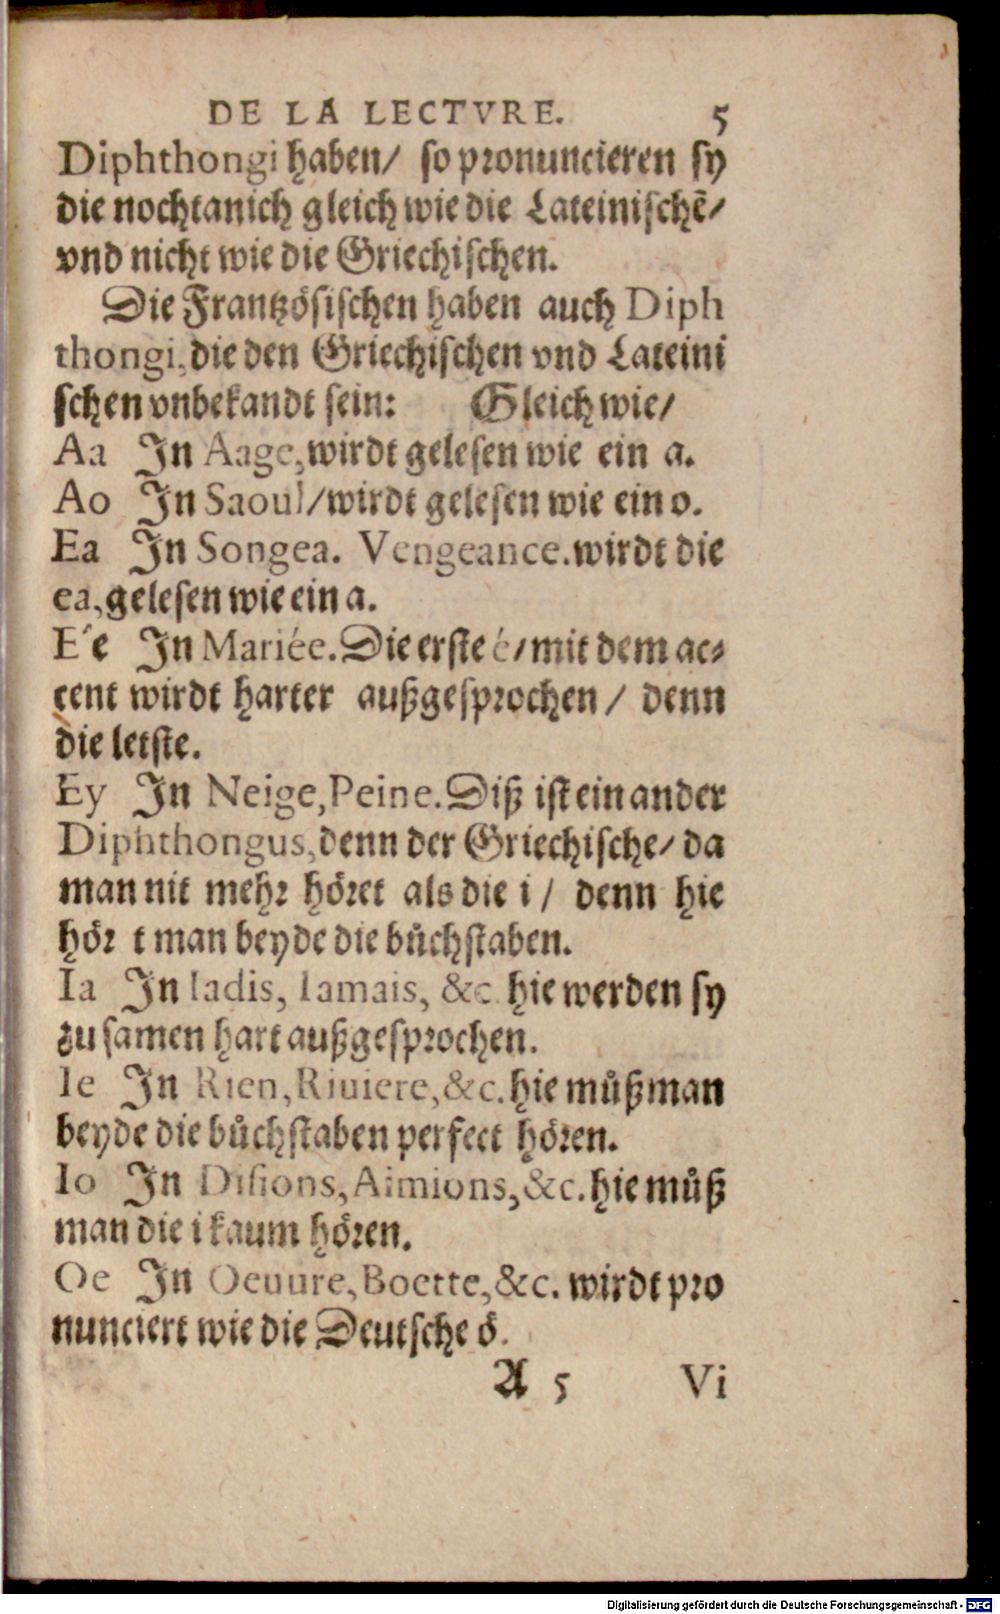 DE LA LECTVRE. 5
Diphthongi haben/ so pronuncieren sy
die nochtanich gleich wie die Lateinischē/
vnd nicht wie die Griechischen.
Die Frantzösischen haben auch Diph
thongi, die den Griechischen vnd Lateini
schen vnbekandt sein: Gleich wie/
Aa In Aage, wirdt gelesen wie ein a.
Ao In Saoul/ wirdt gelesen wie ein o.
Ea In Songea. Vengeance. wirdt die
ea, gelesen wie ein a.
E´e In Mariée. Die erste é/ mit dem ac⸗
cent wirdt harter außgesprochen/ denn
die letste.
Ey In Neige, Peine. Diß ist ein ander
Diphthongus, denn der Griechische/ da
man nit mehr höret als die i/ denn hie
hör t man beyde die bůchstaben.
Ia In Iadis, Iamais, &c. hie werden sy
zu samen hart außgesprochen.
Ie In Rien, Riuiere, &c. hie můß man
beyde die bůchstaben perfect hören.
Io In Disions, Aimions, &c. hie můß
man die i kaum hören.
Oe In Oeuure, Boette, &c. wirdt pro
nunciert wie die Deutsche ö.
A 5 Vi
Digitalisierung gefördert durch die Deutsche Forschungsgemeinschaft - DFG